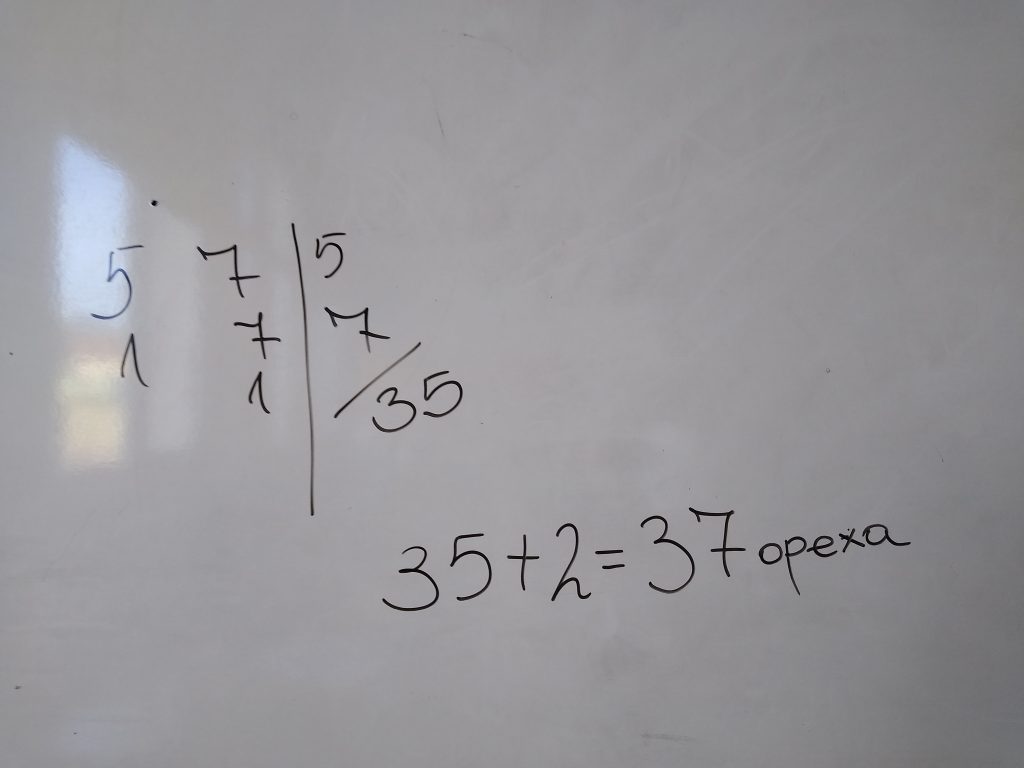 5 7 | 5
1 7 | 7
1 | 35
35+2=37 ореха